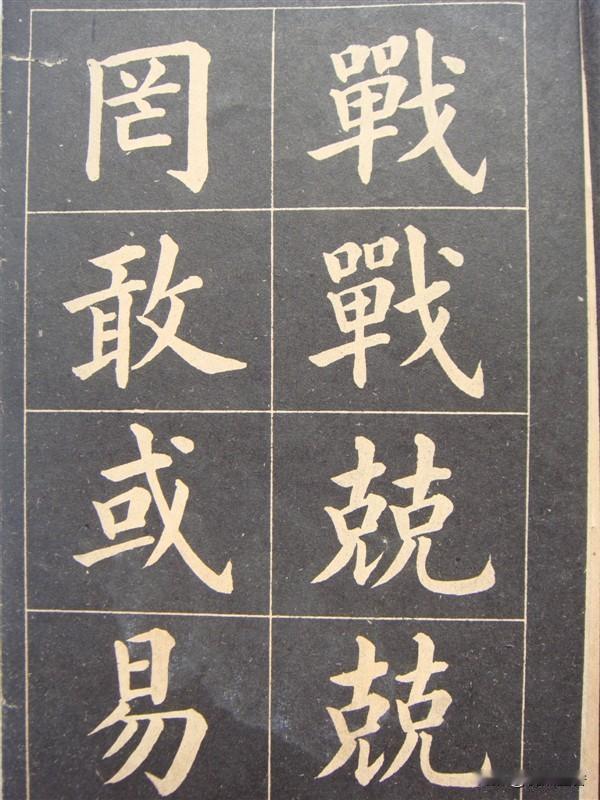 戰戰兢兢
罔敢或易